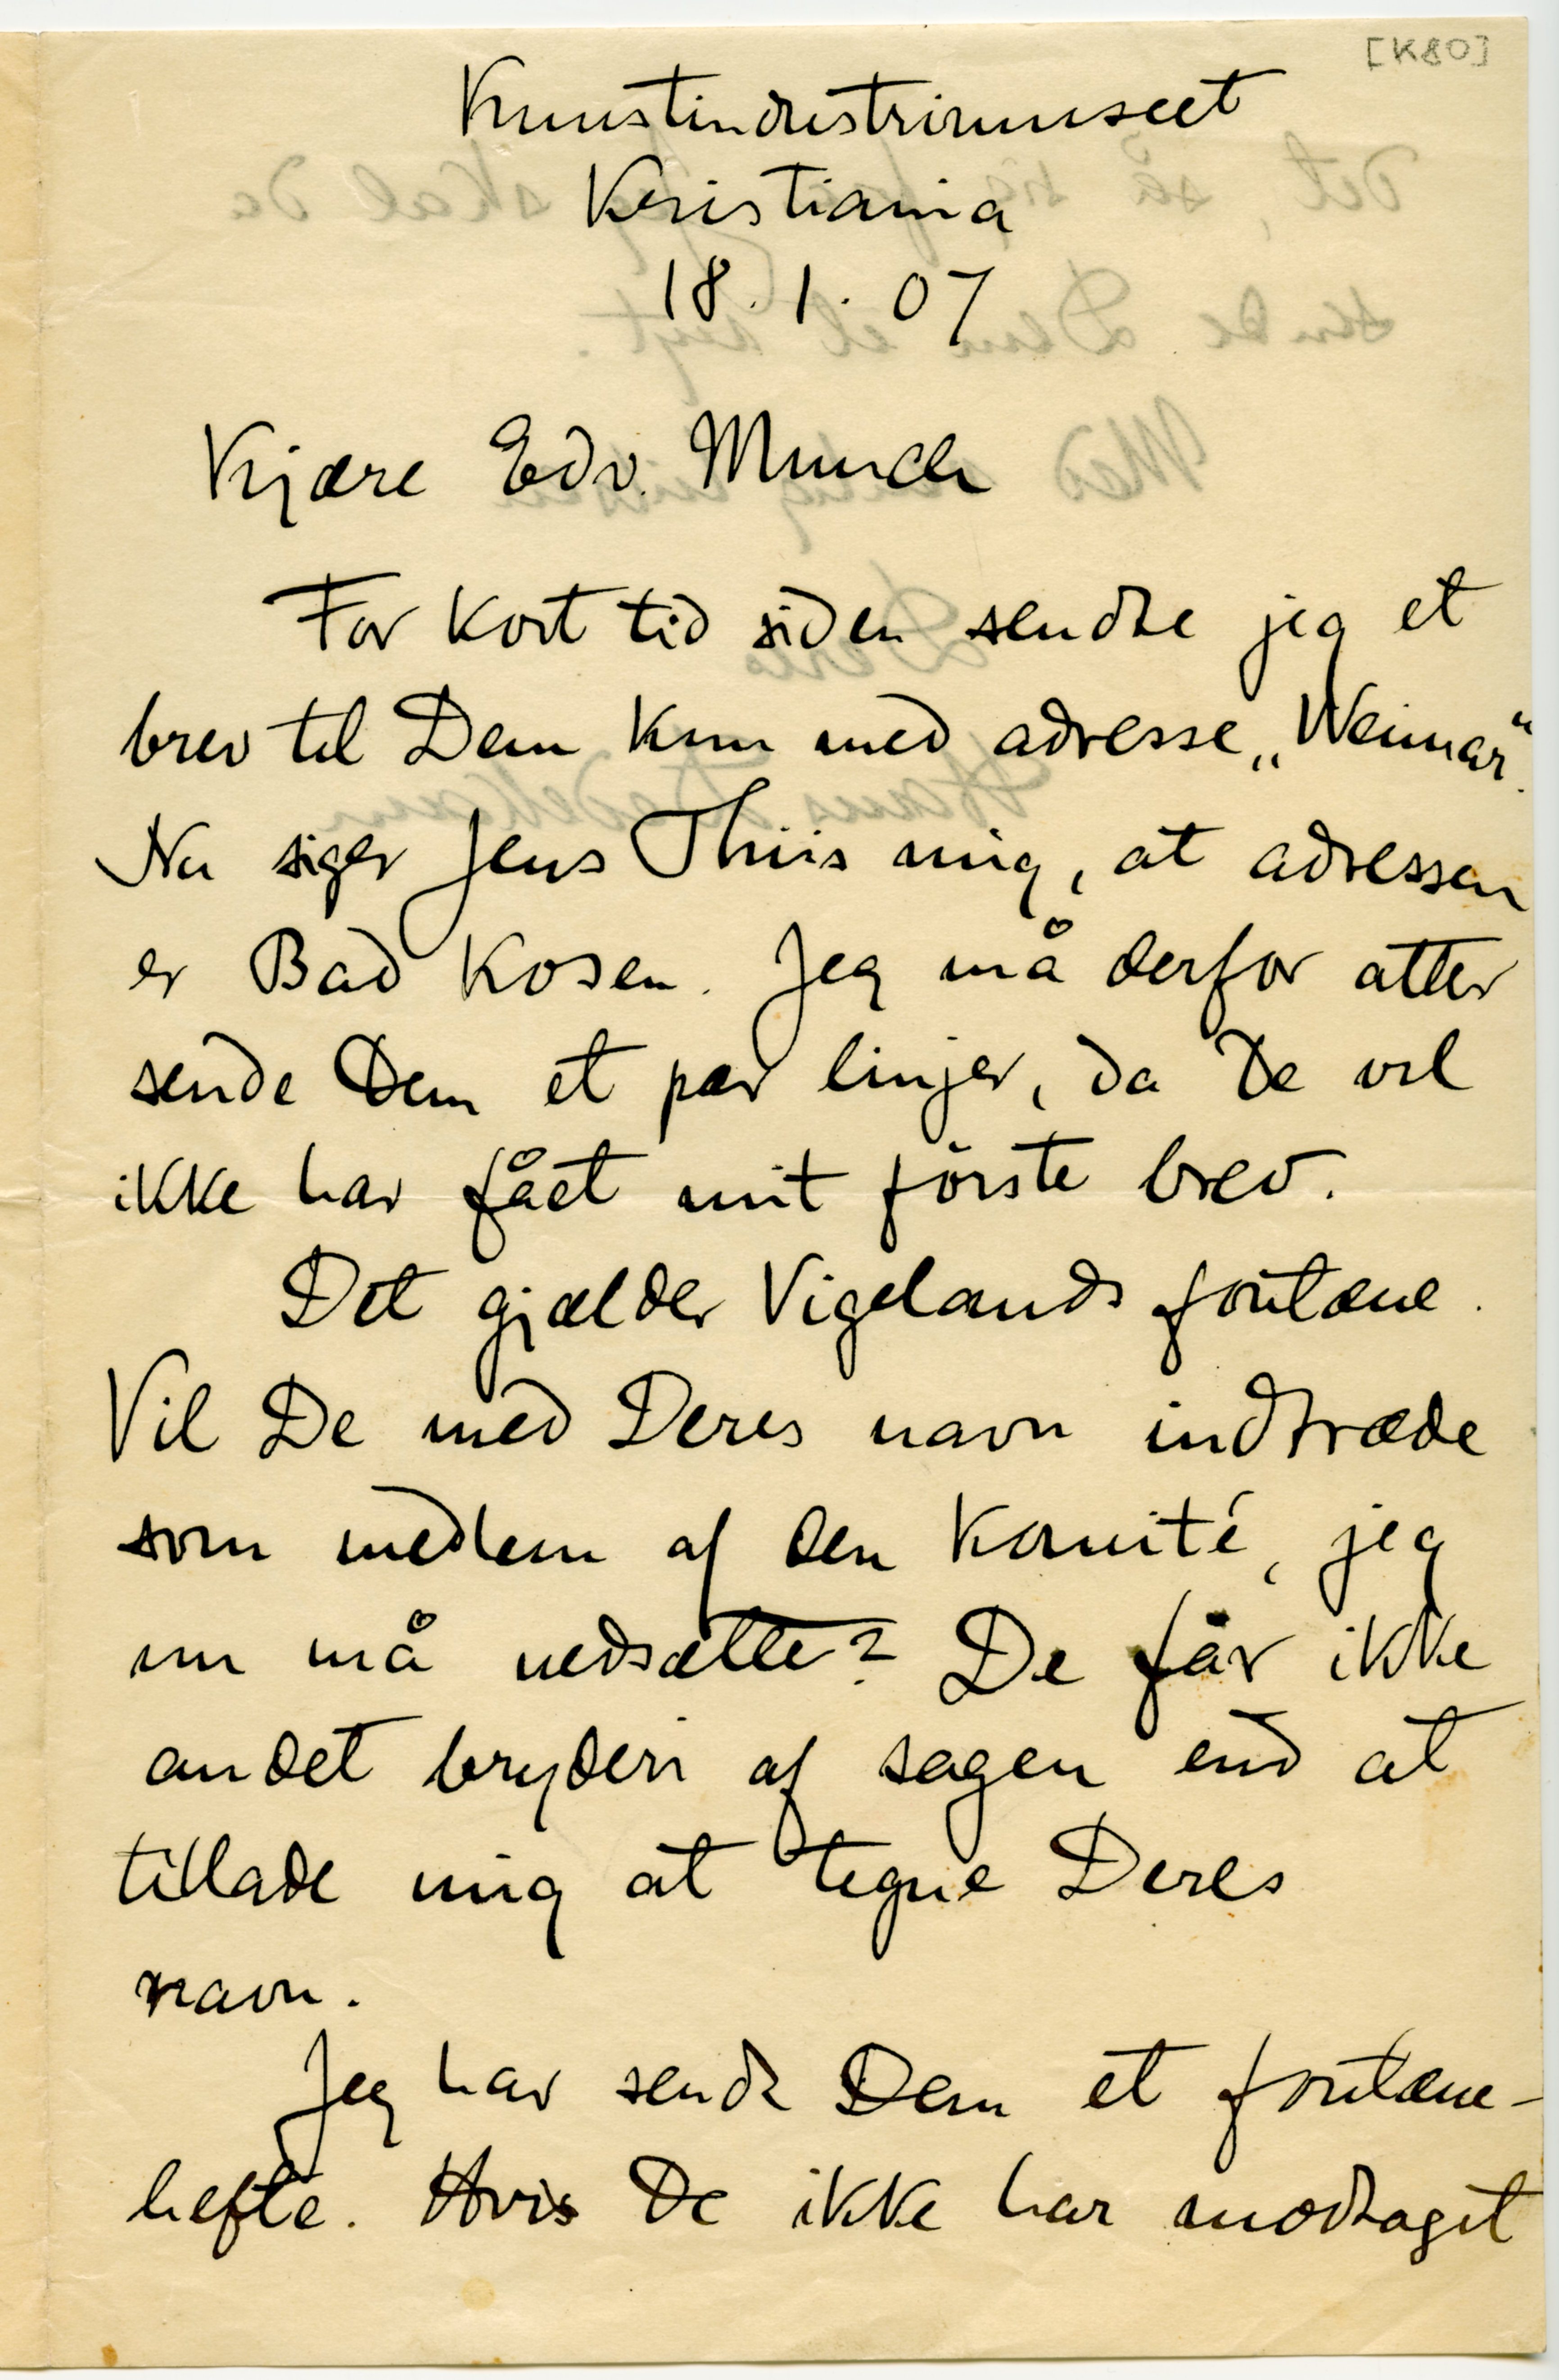 [K80]
Kunstindustrimuseet
Kristiania
18. 1. 07
Kjære Edv. Munch
For kort tid siden sendte jeg et
brev til Dem kun med adresse „Weimar“.
Nu siger Jens Thiis mig, at adressen
er Bad Kosen. Jeg må derfor atter
sende Dem et par linjer, da De vel
ikke har fået mit første brev.
Det gjælder Vigelands fontæne.
Vil De med Deres navn indtræde
som medlem af den komité, jeg
nu må nedsætte? De får ikke
andet bryderi af sagen end at
tillade mig at tegne Deres
navn.
Jeg har sendt Dem et fontæne-
hefte. Hvis De ikke har modtaget